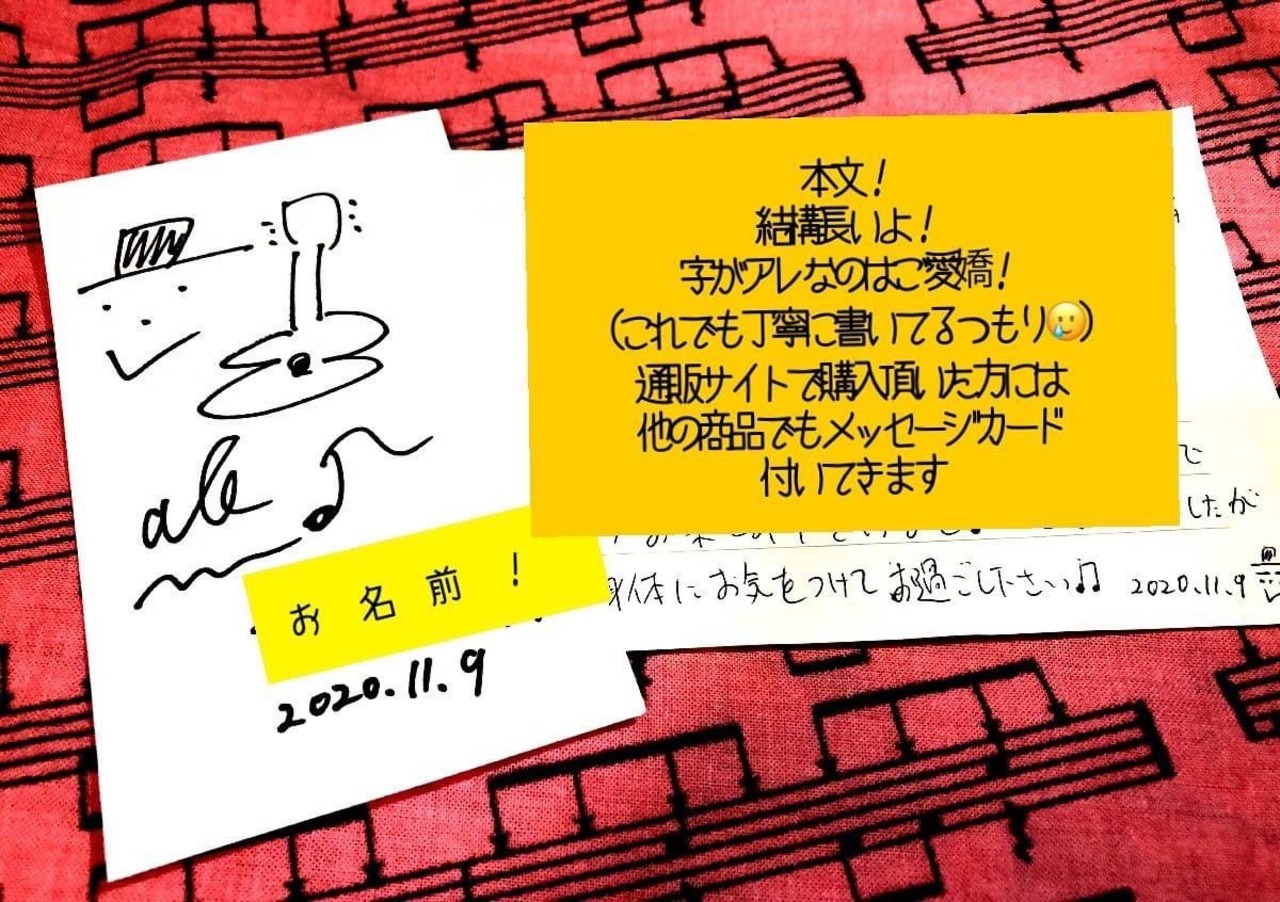 お名前!
2020.11.9
本文!
結構長いよ!
字がアレなのはご愛嬌!
(これでも丁寧に書いてるつもり🥲)
通販サイトで購入頂いた方には
他の商品でもメッセージカード
付いてきます
で
したが
体にお気をつけてお過ごし下さい♫ 2020.11.9